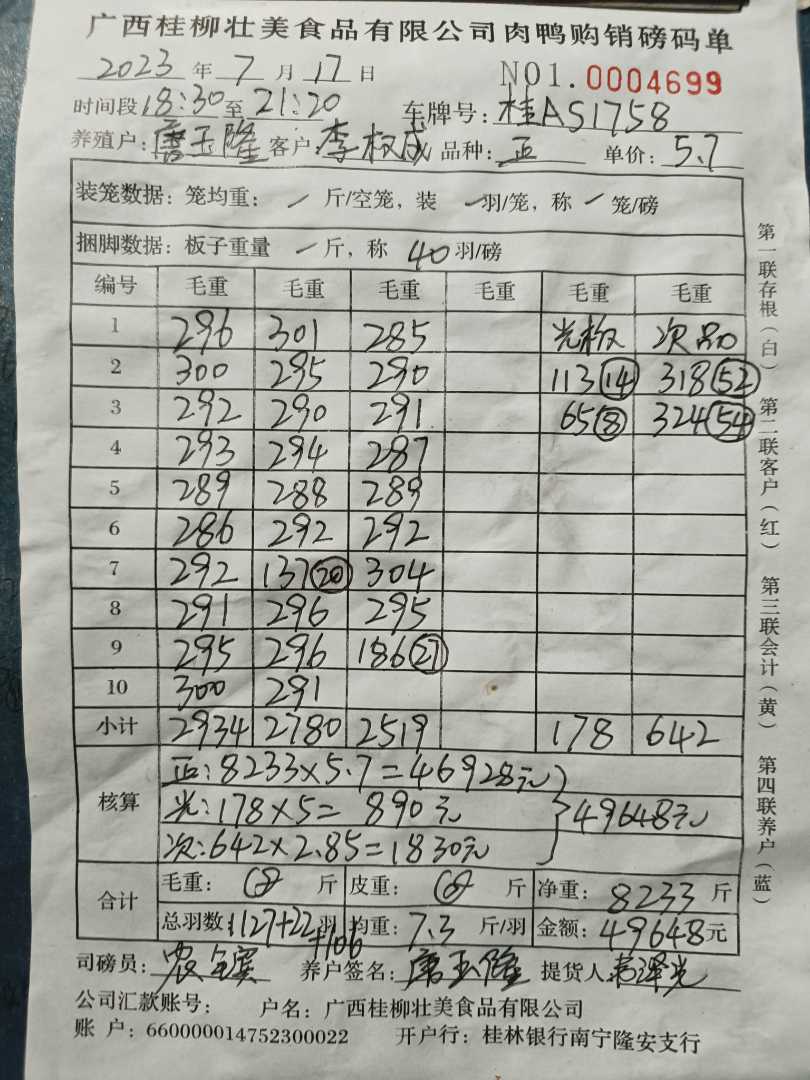 广西桂柳壮美食品有限公司肉鸭购销磅码单
2023 年 7 月 17 日 NO1. 0004699
时间段 18:30 至 21:20 车牌号: 桂AS1758
养殖户: 唐玉隆 客户: 李权成 品种: 正 单价: 5.7
装笼数据: 笼均重: / 斤/空笼, 装 / 羽/笼, 称 / 笼/磅
捆脚数据: 板子重量 / 斤, 称 40 羽/磅
编号 毛重 毛重 毛重 毛重 毛重 毛重
1 296 301 285 光板 次品
2 300 295 290 113(14) 318(52)
3 292 290 291 65(8) 324(54)
4 293 294 287
5 289 288 289
6 286 292 292
7 292 137(20) 304
8 291 296 295
9 295 296 186(27)
10 300 291
小计 2934 2780 2519 178 642
核算
正: 8233×5.7=46928元
光: 178×5= 890元
次: 642×2.85=1830元
49648元
合计
毛重: 斤 皮重: 斤 净重: 8233 斤
总羽数: 1127+22羽 均重: 7.3 斤/羽 金额: 49648元
+106
司磅员: 养户签名: 唐玉隆 提货人
公司汇款账号: 户名: 广西桂柳壮美食品有限公司
账 户: 660000014752300022 开户行: 桂林银行南宁隆安支行
第一联存根(白)
第二联客户(红)
第三联会计(黄)
第四联养户(蓝)